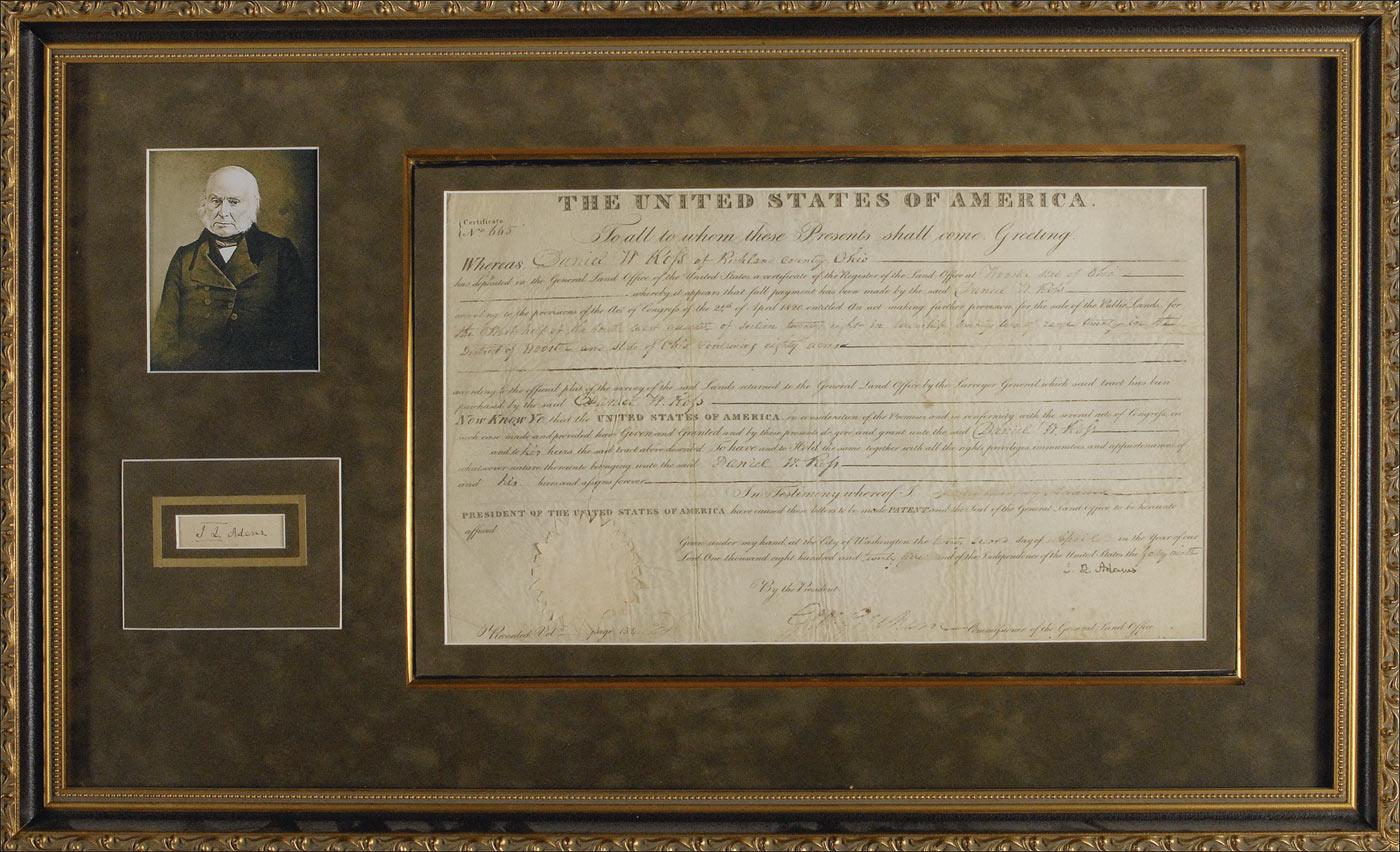 THE UNITED STATES OF AMERICA.
Certificate
No. 665
To all to whom these Presents shall come, Greeting
Whereas Daniel W Koſs of Richland County, Ohio
has deposited in the General Land Office of the United States, a certificate of the Register of the Land Office at state of Ohio
whereby it appears that full payment has been made by the said Daniel W. Koſs
according to the provisions of the Act of Congreſs of the 24th of April 1820, entitled An act making further provision for the sale of the Public Lands, for
the quarter of section twenty eight in township range twenty in the
District of Wooster and State of Ohio containing eighty acres
according to the official plat of the survey of the said Lands returned to the General Land Office by the Surveyor General which said tract has been
purchased by the said Daniel W. Koſs
Now Know Ye that the UNITED STATES OF AMERICA, in consideration of the Premises and in conformity with the several acts of Congreſs, in
such case made and provided, have Given and Granted and by these presents do give and grant unto the said Daniel W Koſs
and to his heirs, the said tract above described To have and to Hold the same, together with all the rights, privileges, immunities, and appurtenances of
whatsoever nature thereunto belonging unto the said Daniel W. Koſs
and his heirs and aſsigns forever
In Testimony whereof I Adams
PRESIDENT OF THE UNITED STATES OF AMERICA have caused these letters to be made PATENT and the Seal of the General Land Office to be hereunto
affixed
Given under my hand, at the City of Washington the twenty second day of April in the Year of our
Lord One thousand eight hundred and twenty five and of the Independence of the United States the forty ninth
J. Q. Adams
By the President
Commiſsioner of the General Land Office
Recorded Vol page
J Q Adams